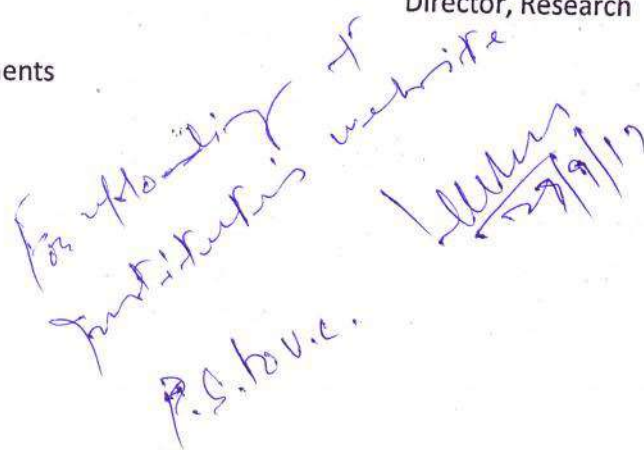 Director, Research
nents
For uploading
Institute's website
27/9/17
P.S. to V.C.